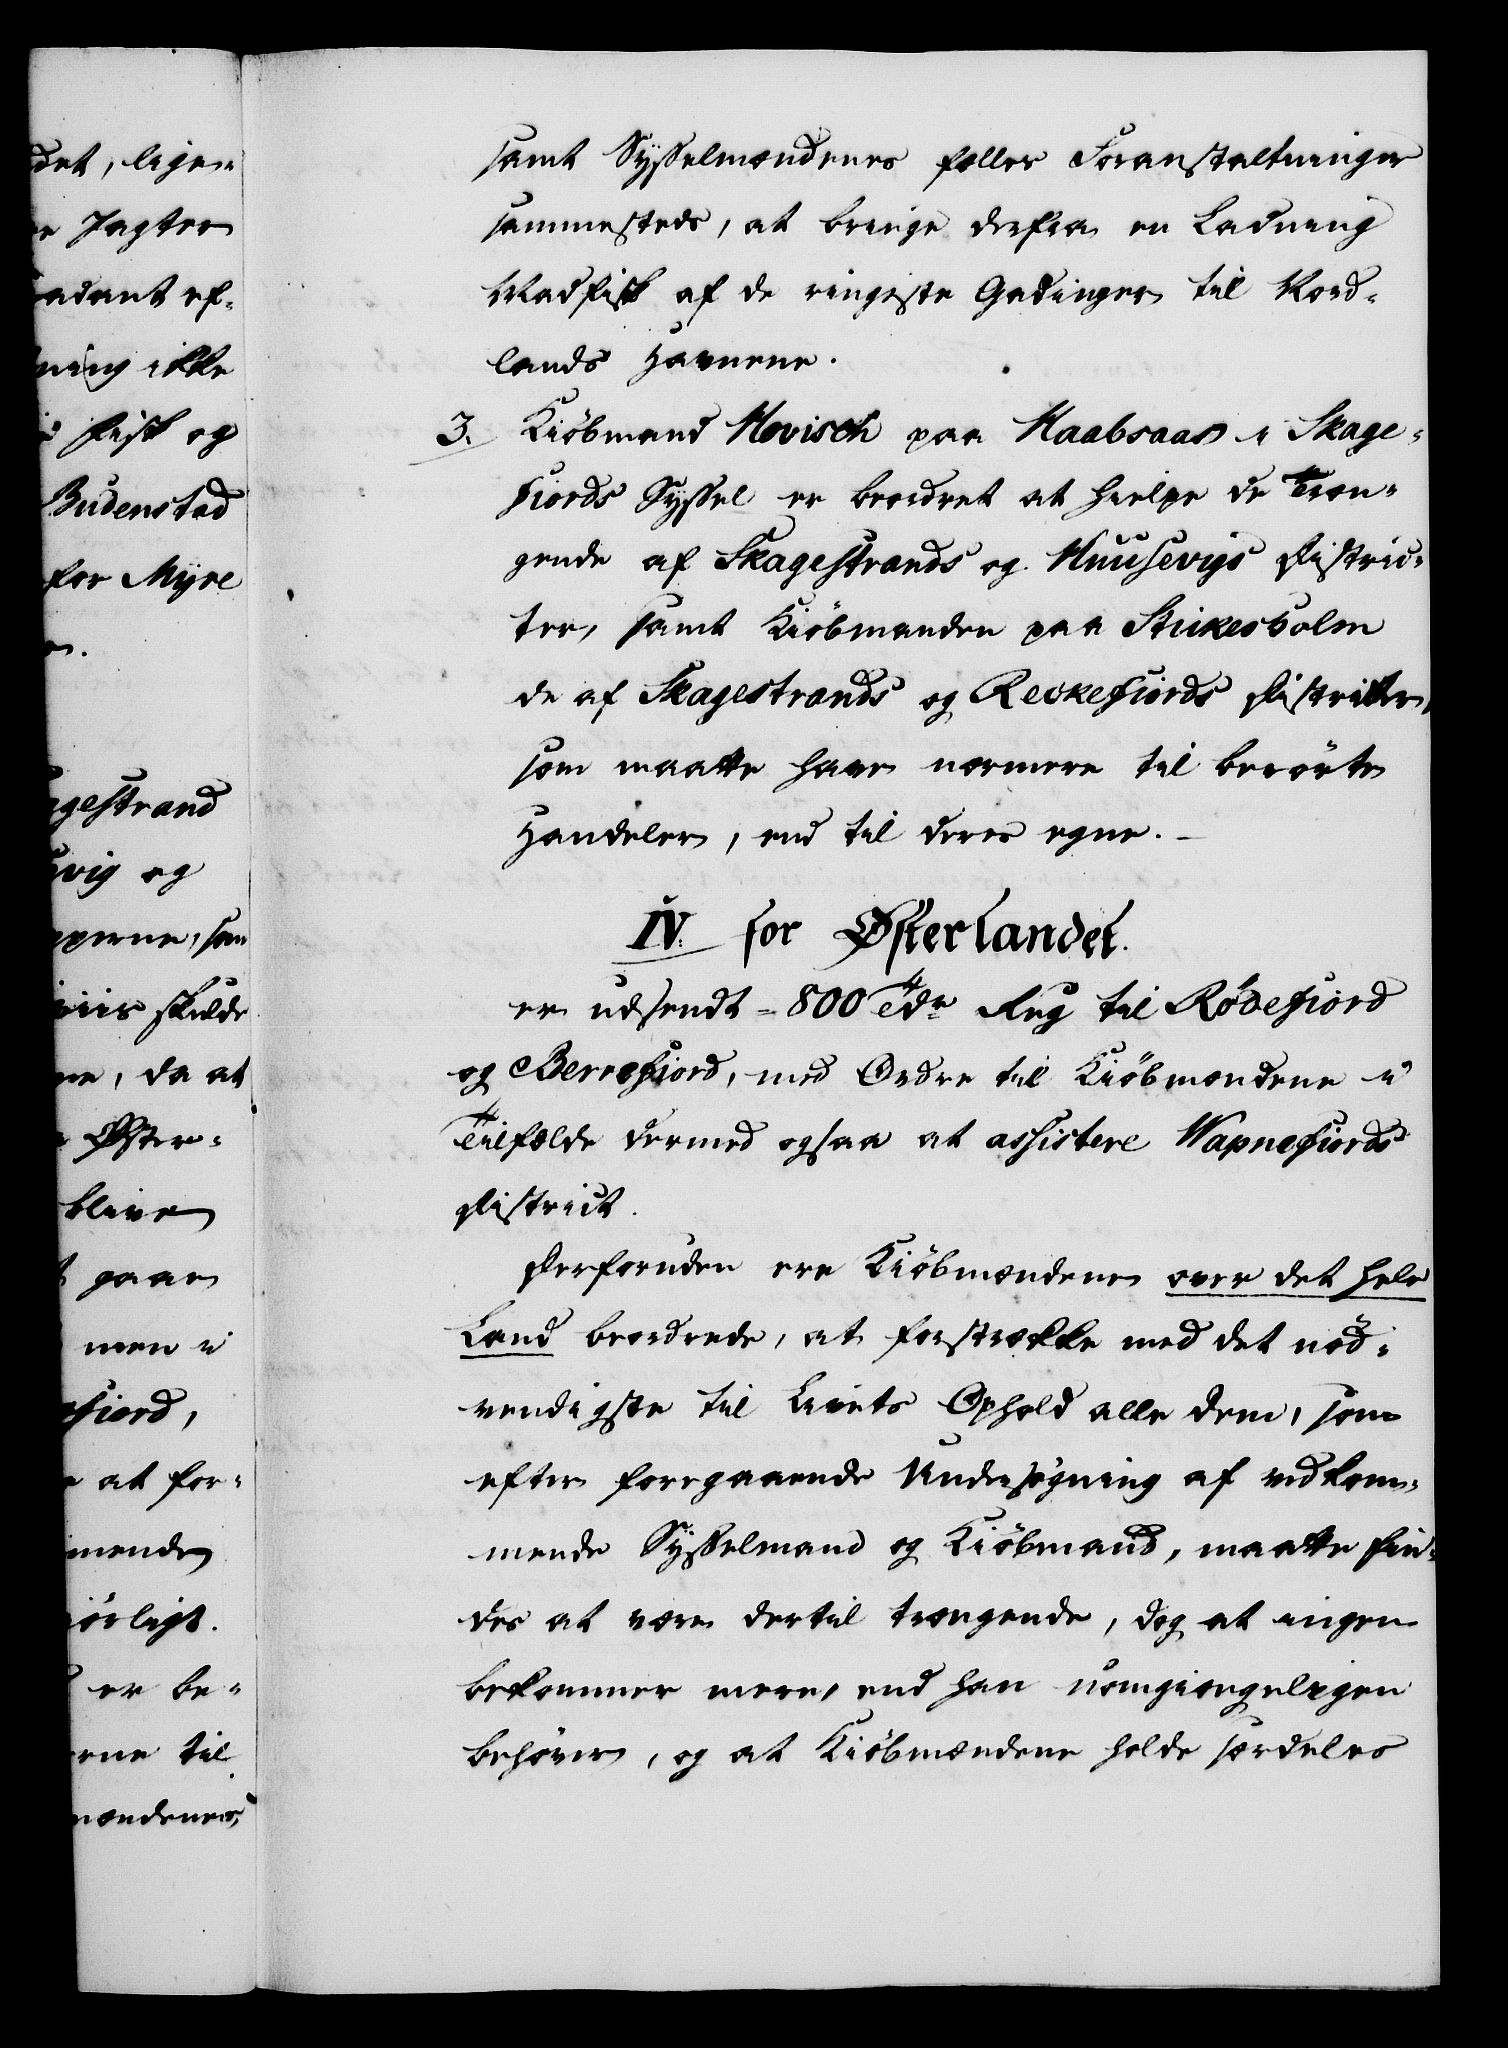 det, lige-
Jagter
adant ef-
ning ikke
Fisk og
Budenstad
for Myre
gestrand
vig og
perne, som
skulde
, da at
Øster-
blive
gaae
men i
fiord,
at for-
mende
iørligt.
er be-
erne til
mændenes,
samt Sysselmændenes fælles Foranstaltninger
sammesteds, at bringe derfra en Ladning
Madfisk af de ringeste Gadinger til Nord-
lands Havnene.
3. Kiöbmand Hovisch paa Haabsaas i Skage-
fiords Syssel er beordret at hielpe de Træn-
gende af Skagestrands og Huusevigs Distric-
ter, samt Kiöbmanden paa Stikesholm
de af Skagestrands og Reckefiords Districter,
som maatte have nærmere til berörte
Handeler, end til deres egne. -
IV. for Østerlandet.
er udsendt - 800 Tdr Rug til Rödefiord
og Berrefiord, med Ordre til Kiöbmændene i
Tilfælde dermed ogsaa at assistere Wapnefiords
District.
Derforuden ere Kiöbmændene over det hele
Land beordrede, at forstrække med det nöd-
vendigste til Livets Ophold alle dem, som
efter foregaaende Undersøgning af vedkom-
mende Sysselmand og Kiöbmand, maatte fin-
des at være dertil trængende, dog at ingen
bekommer mere, end han uomgiengeligen
behøver, og at Kiöbmændene holde særdeles